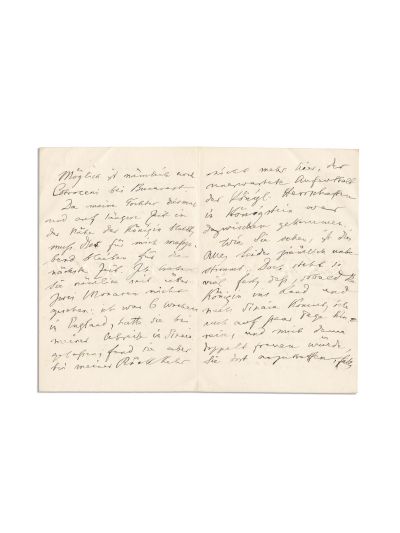 Möglich ist nämlich auch
Cotroceni bei Bucarest.
Da meine Tochter diesmal
und auf längere Zeit in
der Nähe der Königin bleiben
muß,
nächste Zeit. Ich habe
sie nämlich seit über
zwei Monaten nicht
gesehen: ich war 6 Wochen
in England, hatte sie bei
meiner Abreise in Sinaia
gelassen, fand sie aber
bei meiner Rückkehr
nicht mehr hier, der
unerwartete Aufenthalt
der Königl. Herrschaften
in Königstein war
dazwischen gekommen.
Wie Sie sehen, ist dies
Alles leider ziemlich unbe=
stimmt. Doch steht so
viel fest, daß, sobald die
Königin im Land und
nach Sinaia kommt, ich
auch auf paar Tage hin=
reise, und mich dann
doppelt freuen würde,
Sie dort anzutreffen